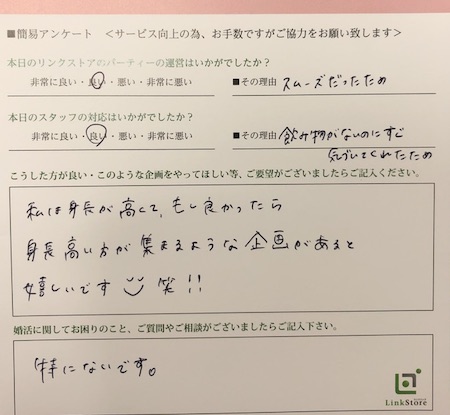 ■簡易アンケート　＜サービス向上の為、お手数ですがご協力をお願い致します＞
本日のリンクストアのパーティーの運営はいかがでしたか？
非常に良い・良い・悪い・非常に悪い　■その理由　スムーズだったため
本日のスタッフの対応はいかがでしたか？
非常に良い・良い・悪い・非常に悪い　■その理由　飲み物がないのにすぐ
気づいてくれたため
こうした方が良い・このような企画をやってほしい等、ご要望がございましたらご記入ください。
私は身長が高くて、もし良かったら
身長高い方が集まるような企画があると
嬉しいです 笑!!
婚活に関してお困りのこと、ご質問やご相談がございましたらご記入下さい。
特にないです。
LinkStore